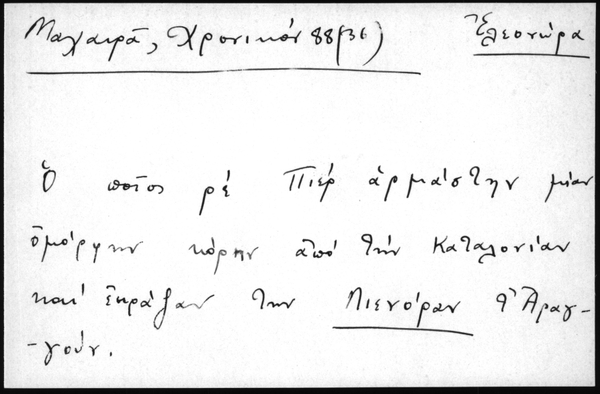 Μαχαιρᾶ, Χρονικόν 88(36) Ἐλεονώρα
Ὁ ποῖος ρὲ Πιὲρ ἁρμάστην μίαν
ὄμορφην κόρην ἀπὸ τὴν Καταλονίαν
καὶ ἐκράζαν την Λιενόραν τ' Ἀραγ-
-γούν.